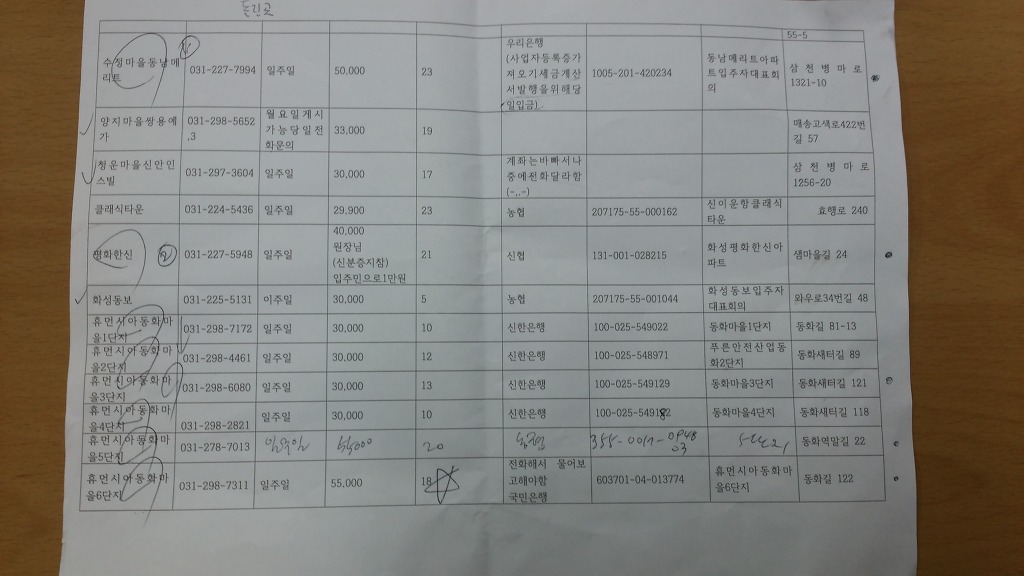 55-5
수성마을동남메리트 031-227-7994 일주일 50,000 23 우리은행 (사업자등록증가져오기세금계산서발행을위해당일입금) 1005-201-420234 동남메리트아파트입주자대표회의 삼천병마로 1321-10
양지마을쌍용예가 031-298-5652,3 월요일게시가능당일전화문의 33,000 19 매송고색로422번길 57
청운마을신안인스빌 031-297-3604 일주일 30,000 17 계좌는바빠서나중에전화달라함(-,.-) 삼천병마로 1256-20
클래식타운 031-224-5436 일주일 29,900 23 농협 207175-55-000162 신이운항클래식타운 효행로 240
평화한신 031-227-5948 일주일 40,000 원장님 (신분증지참) 입주민으로1만원 21 신협 131-001-028215 화성평화한신아파트 샘마을길 24
화성동보 031-225-5131 이주일 30,000 5 농협 207175-55-001044 화성동보입주자대표회의 와우로34번길 48
휴먼시아동화마을1단지 031-298-7172 일주일 30,000 10 신한은행 100-025-549022 동화마을1단지 동화길 81-13
휴먼시아동화마을2단지 031-298-4461 일주일 30,000 12 신한은행 100-025-548971 푸른안전산업동화2단지 동화새터길 89
휴먼시아동화마을3단지 031-298-6080 일주일 30,000 13 신한은행 100-025-549129 동화마을3단지 동화새터길 121
휴먼시아동화마을4단지 031-298-2821 일주일 30,000 10 신한은행 100-025-549182 동화마을4단지 동화새터길 118
휴먼시아동화마을5단지 031-278-7013 일주일 55000 20 농협 355-0051-0948-03 5단지 동화역말길 22
휴먼시아동화마을6단지 031-298-7311 일주일 55,000 18 전화해서 물어보고해야함 국민은행 603701-04-013774 휴먼시아동화마을6단지 동화길 122